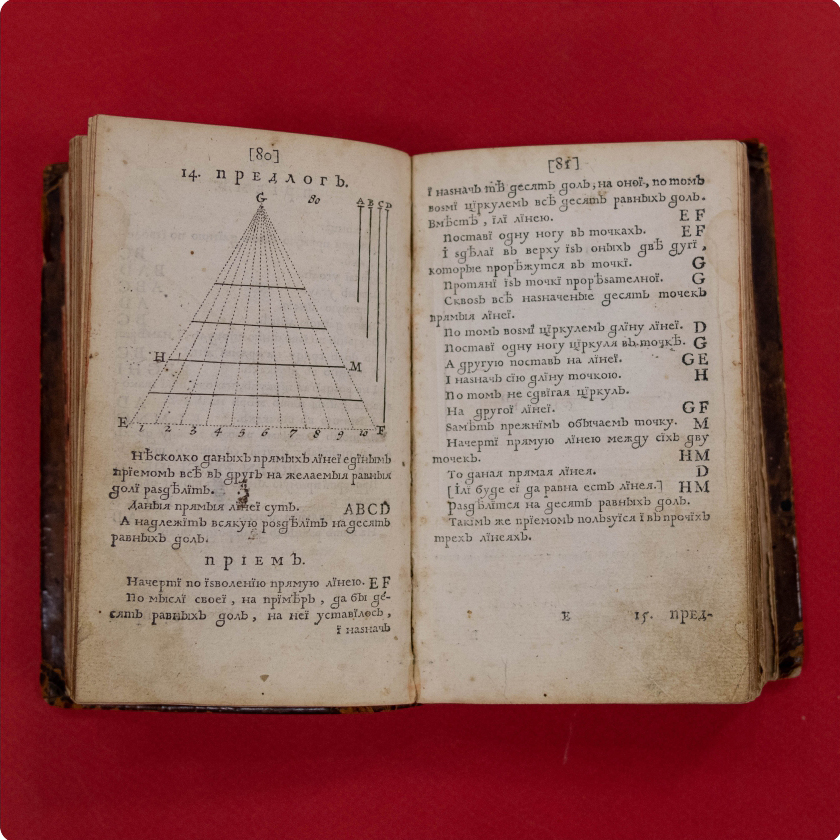 [80]
14. ПРЕДЛОГЪ.
G 80 A B C D
H M
E 1 2 3 4 5 6 7 8 9 10 F
Нѣсколко даныхъ прямыхъ лїнеї едїнымъ
прїемомъ всѣ въ другъ на желаемыя равныя
долї раздѣлїть.
Даныя прямыя лїнеї суть. ABCD
А надлежїтъ всякую роздѣлїть на десять
равныхъ доль.
ПРІЕМЪ.
Начертї по їзволенїю прямую лїнею. EF
По мыслї своеї, на прїмѣръ, да бы де-
сять равныхъ доль, на неї уставїлось,
ї назначь
[81]
ї назначь тѣ десять доль, на оної, по томъ
возмї цїркулемъ всѣ десять равныхъ доль.
Вмѣстѣ, їлї лїнею. EF
Поставї одну ногу въ точкахъ. EF
І здѣлаї въ верху їзъ оныхъ двѣ дугї,
которые прорѣжутся въ точкї. G
Протянї їзъ точкї прорѣзателної. G
Сквозь всѣ назначеные десять точекъ
прямыя лїнеї.
По томъ возмї цїркулемъ длїну лїнеї. D
Поставї одну ногу цїркуля въ точкѣ. G
А другую поставь на лїнеї. GE
І назначь сїю длїну точкою. H
По томъ не сдвїгая цїркуль.
На другої лїнеї. GF
Замѣть прежнїмъ обычаемъ точку. M
Начертї прямую лїнею между сїхъ дву
точекъ. HM
То даная прямая лїнея. D
[Їлї буде еї да равна есть лїнея.] HM
Раздѣлїтся на десять равныхъ доль.
Такїмъ же прїемомъ ползуїся ї въ прочїхъ
трехъ лїнеяхъ.
E 15. ПРЕД-